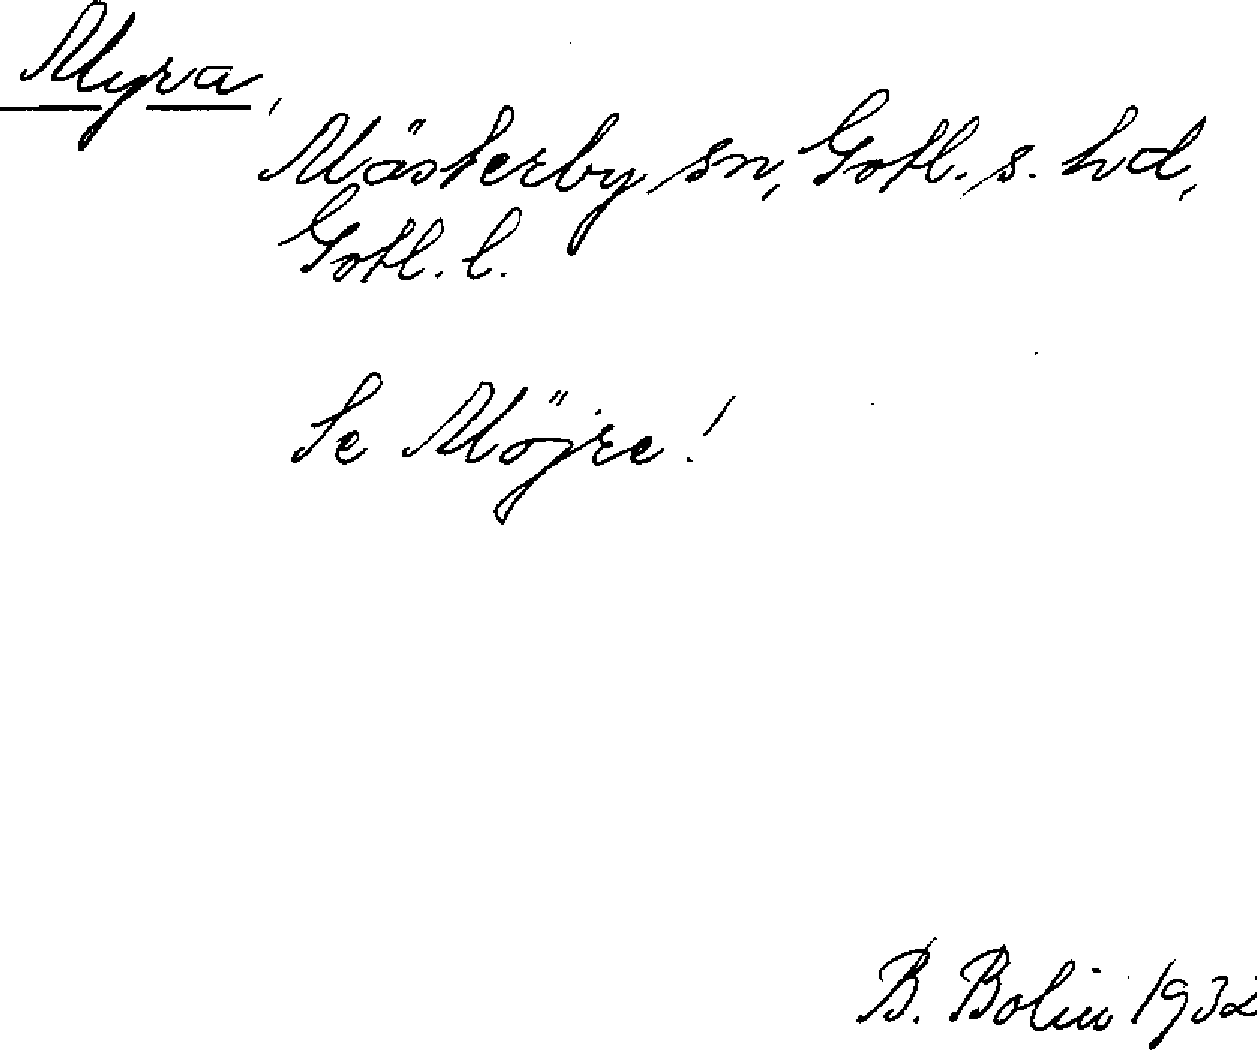 Myra,
Mästerby sn, Gotl. s. hd,
Gotl. l.
Se Möjre!
B. Bolin 1932